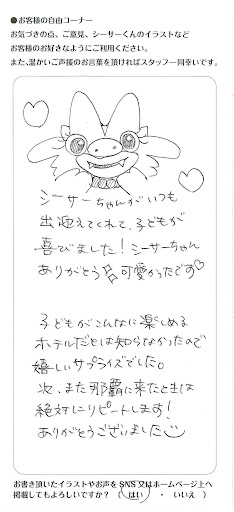 ●お客様の自由コーナー
お気づきの点、ご意見、シーサーくんのイラストなど
お客様のお好きなようにご利用ください。
また、温かいご声援のお言葉を頂ければスタッフ一同幸いです。
シーサーちゃんがいつも
出迎えてくれて、子どもが
喜びました！シーサーちゃん
ありがとう 可愛かったです♡
子どもがこんなに楽しめる
ホテルだとは知らなかったので
嬉しいサプライズでした。
次、また那覇に来たときは
絶対にリピートします！
ありがとうございました
お書き頂いたイラストやお声をSNS又はホームページ上へ
掲載してもよろしいですか？（ はい ・ いいえ ）